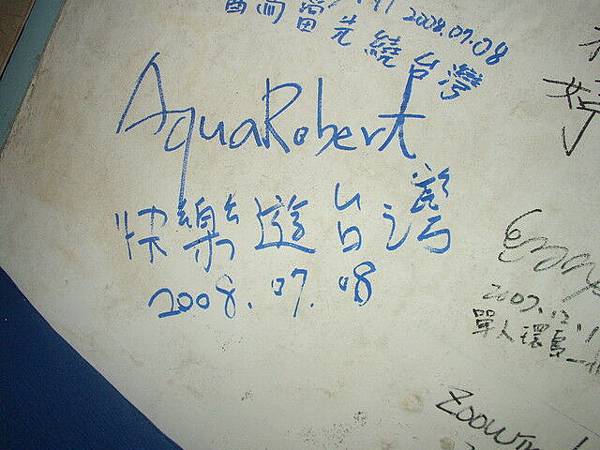 2008.07.08
留先繞台灣
AquaRobert
快樂遊台灣
2008.07.08
婷
2007.12.1
單人環島一
Zoowm